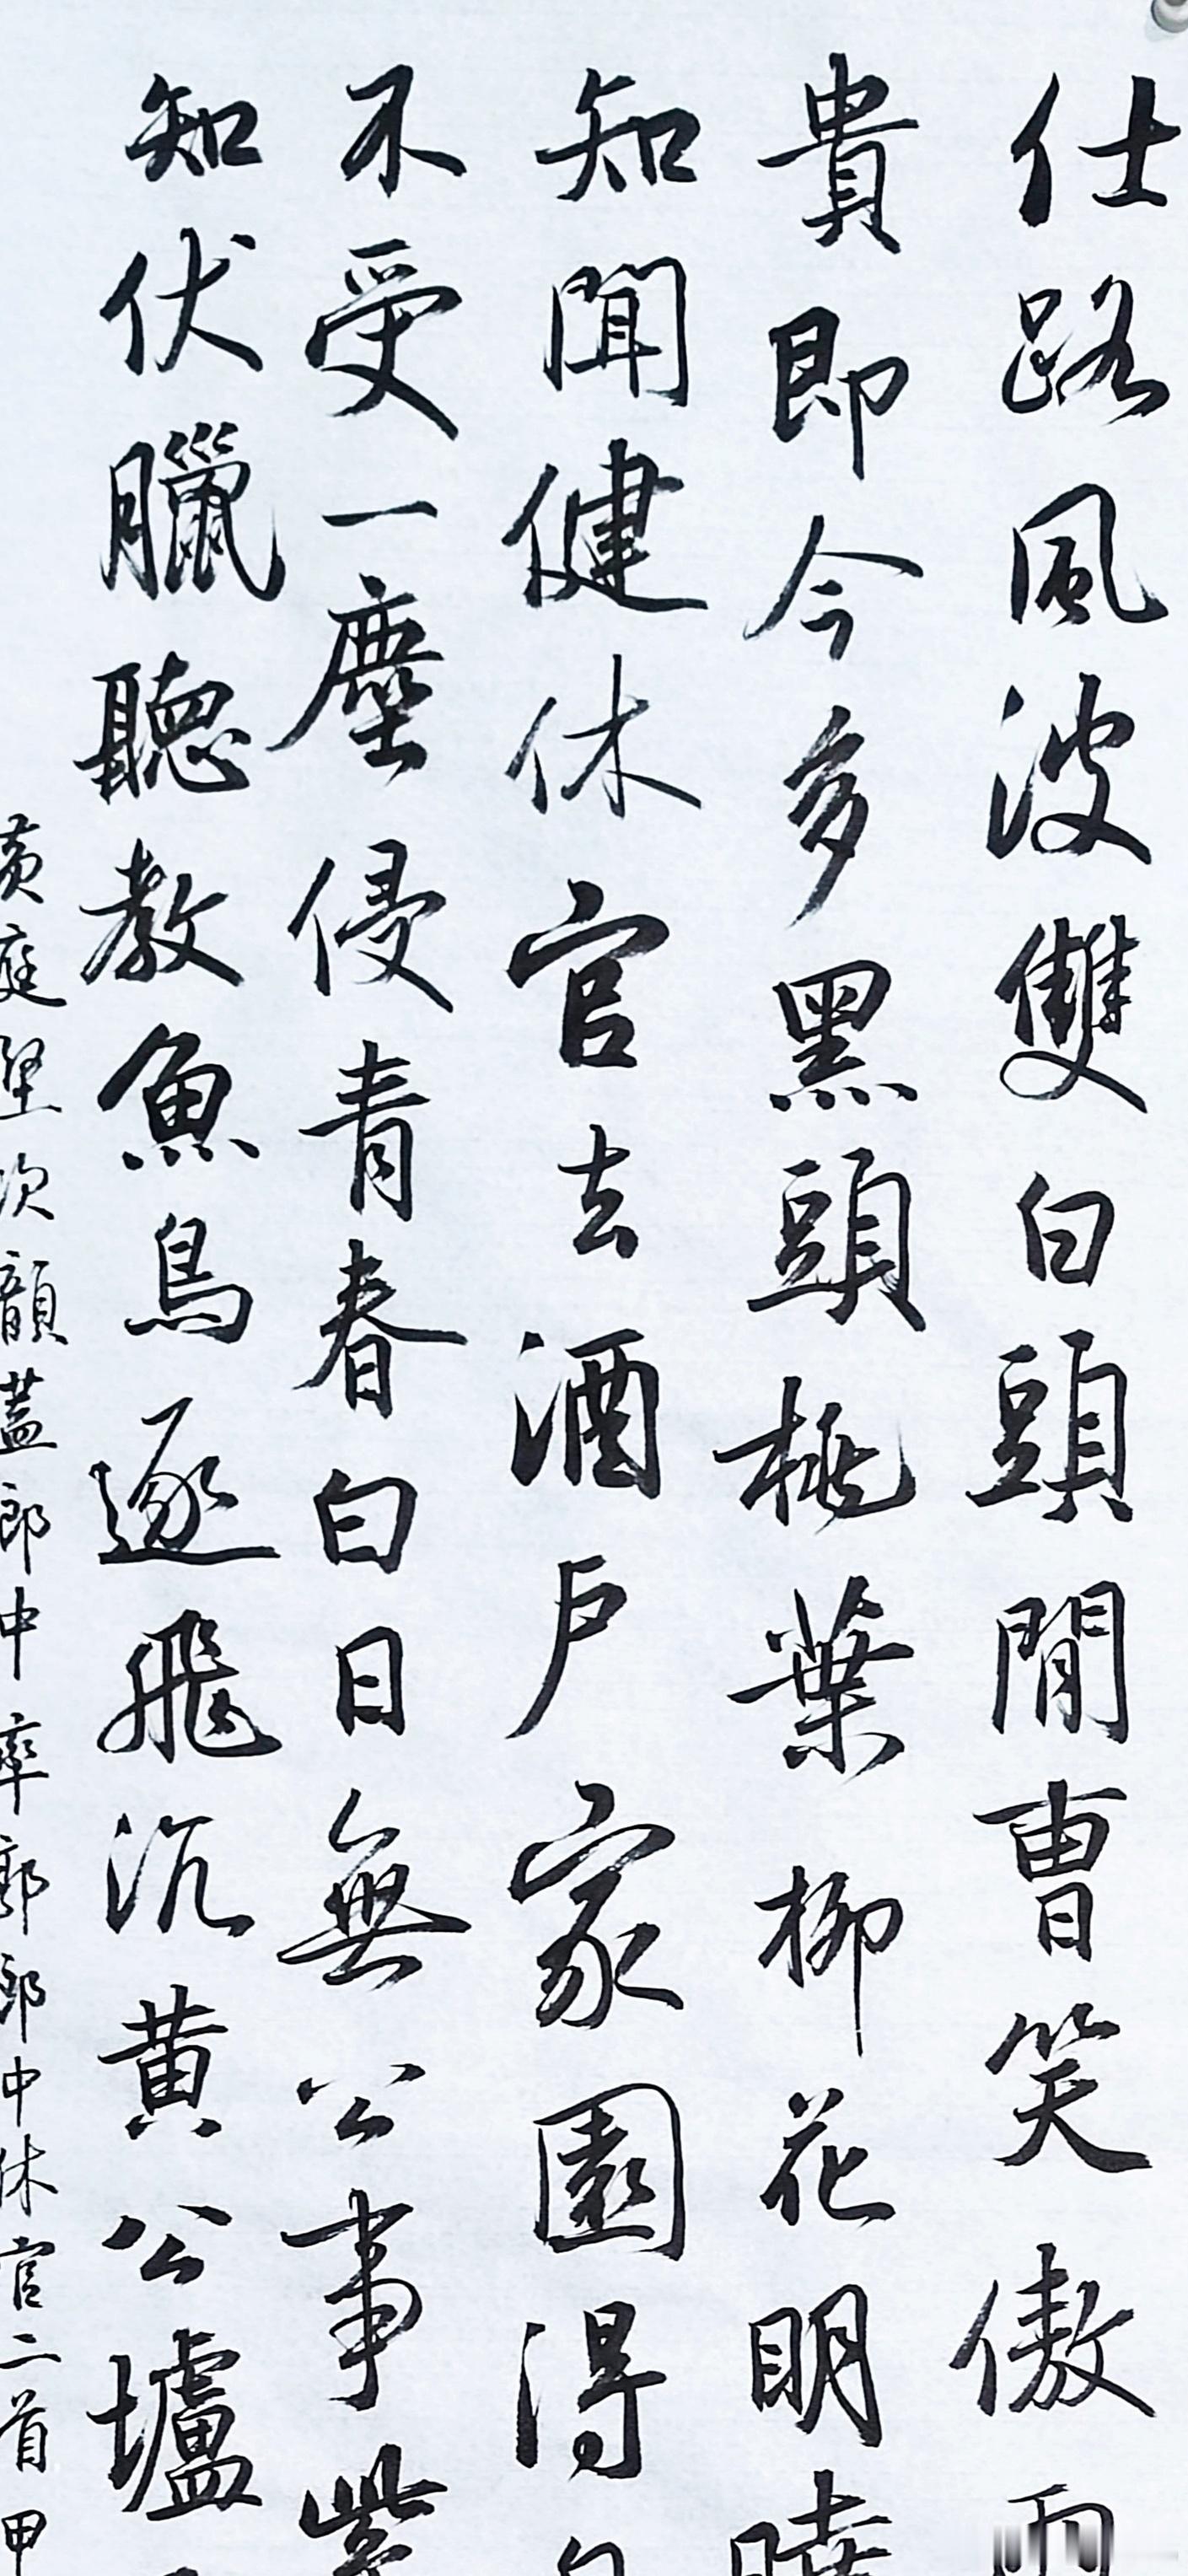 仕路風波雙白頭閒曹笑傲
貴即今多黑頭桃葉柳花明曉
知聞健休官去酒户家園得
不受一塵侵青春白日無公事紫
知伏臘聽教魚鳥逐飛沉黄公壚
黄庭堅次韻蓋郎中率郭郎中休官二首甲